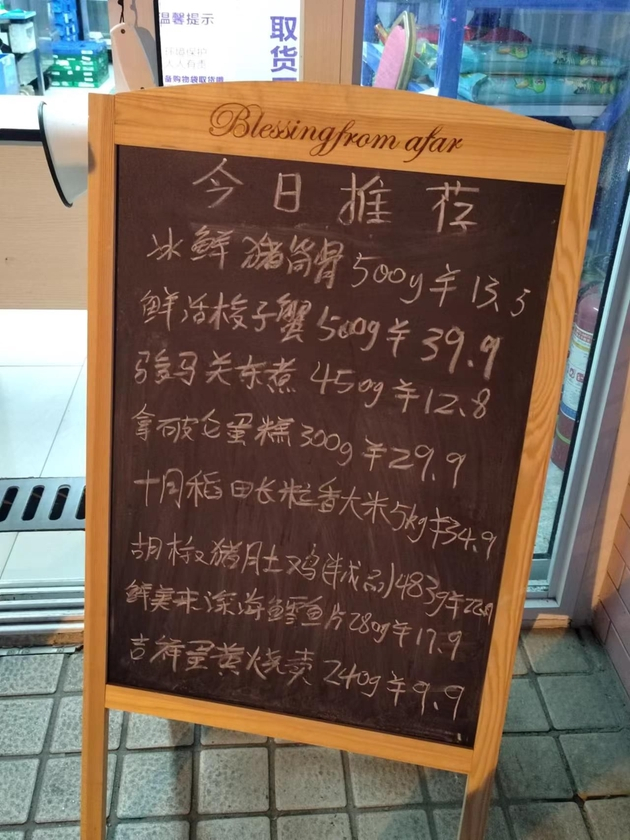 温馨提示
取货
Blessing from afar
今日推荐
冰鲜猪筒骨500g¥13.5
鲜活梭子蟹500g¥39.9
骏马关东煮450g¥12.8
拿破仑蛋糕300g¥29.9
十月稻田长粒香大米5kg¥34.9
胡椒猪肚土鸡(半成品)483g
鲜美来深海鳕鱼片280g¥17.9
吉祥蛋黄烧卖240g¥9.9